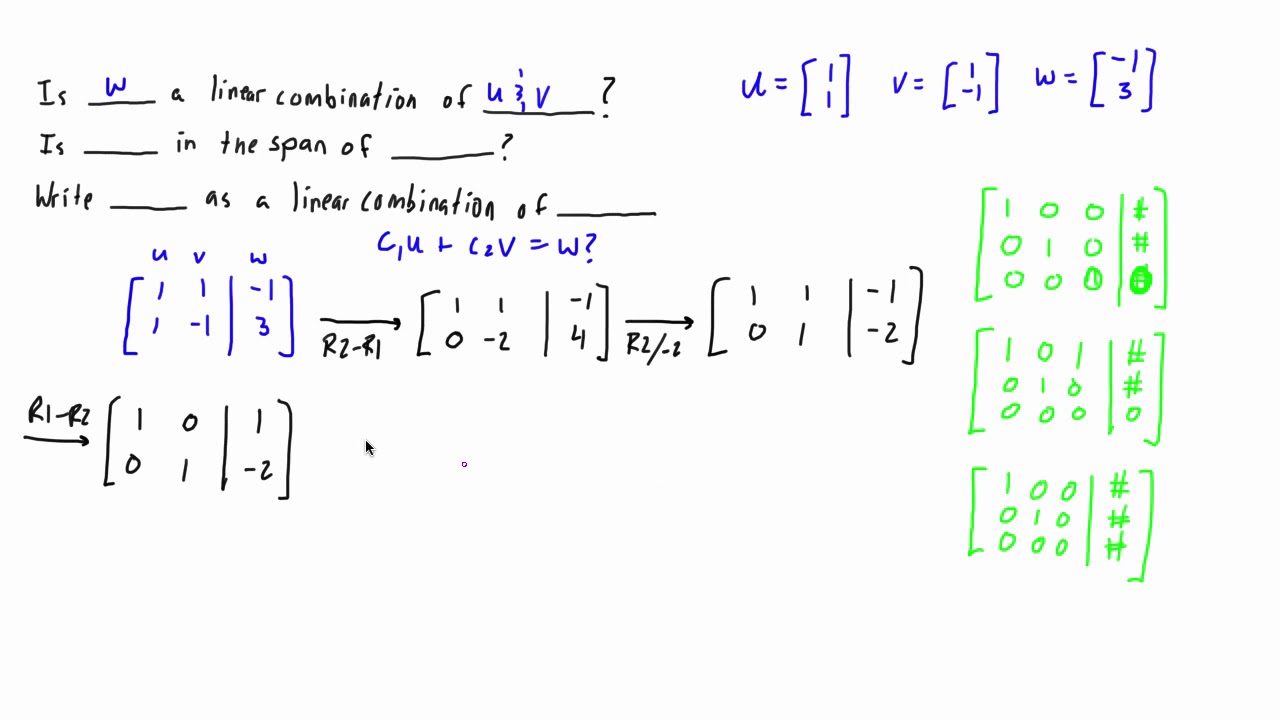 Is w a linear combination of u & v ?
u = [1 1] v = [1 -1] w = [-1 3]
Is ____ in the span of ____?
Write ____ as a linear combination of ____
c₁u + c₂v = w?
u v w
[1 1 | -1
1 -1 | 3]
R2-R1
[1 1 | -1
0 -2 | 4]
R2/-2
[1 1 | -1
0 1 | -2]
R1-R2
[1 0 | 1
0 1 | -2]
[1 0 0 | #
0 1 0 | #
0 0 | ]
[1 0 1 | #
0 1 0 | #
0 0 0 | 0]
[1 0 0 | #
0 1 0 | #
0 0 0 | #]